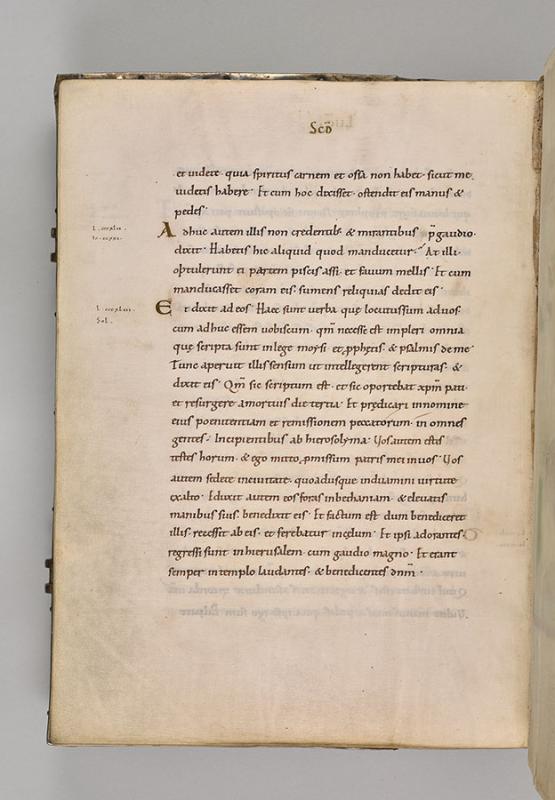 Scd̄
et uidete· quia spiritus carnem et ossa non habet· sicut me
uidetis habere· Et cum hoc dixisset· ostendit eis manus &
pedes·
Adhuc autem illis non credentib; & mirantibus p̄ gaudio·
dixit· Habetis hic aliquid quod manducetur· At illi
obtulerunt ei partem piscis assi· et fauum mellis· Et cum
manducasset coram eis· sumens reliquias dedit eis·
Et dixit ad eos· Haec sunt uerba quę locutus sum ad uos·
cum adhuc essem uobiscum· qm̄ necesse est impleri omnia
quę scripta sunt in lege moysi· et p̱phetis· & psalmis de me·
Tunc aperuit illis sensum ut intellegerent scripturas· &
dixit eis· Qm̄ sic scriptum est· et sic oportebat xpm̄ pati·
et resurgere a mortuis die tertia· Et prędicari in nomine
eius poenitentiam et remissionem peccatorum· in omnes
gentes· Incipientibus ab hierosolyma· Uos autem estis
testes horum· & ego mitto p̱missum patris mei in uos· Uos
autem sedete in ciuitate· quoadusque induamini uirtute
ex alto· Eduxit autem eos foras in bethaniam· & eleuatis
manibus suis· benedixit eis· Et factum est dum benediceret
illis· recessit ab eis· et ferebatur in cęlum· Et ipsi adorantes·
regressi sunt in hierusalem cum gaudio magno· Et erant
semper in templo laudantes· & benedicentes dnm̄·